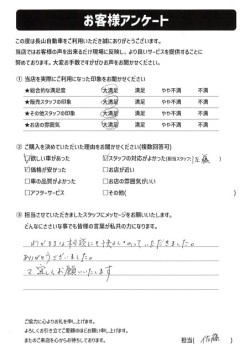 お客様アンケート
この度は長山自動車をご利用いただき誠にありがとうございます。
当店ではお客様の声を出来るだけ現場に反映し、より良いサービスを提供することに
努めております。大変お手数ですがぜひお声をお聞かせください。
① 当店を実際にご利用になった印象をお聞かせください
★総合的な満足度 大満足 満足 やや不満 不満
★販売スタッフの印象 大満足 満足 やや不満 不満
★その他スタッフの印象 大満足 満足 やや不満 不満
★お店の雰囲気 大満足 満足 やや不満 不満
② ご購入を決めていただいた理由をお聞かせください(複数回答可)
☑欲しい車があった ☑スタッフの対応がよかった(担当スタッフ:佐藤)
☑価格が安かった □お店が近い
□車の品質がよかった □お店の雰囲気がいい
□アフターサービス □その他( )
③ 担当させていただきましたスタッフにメッセージをお願いいたします。
どんなにささいな事でも皆様の言葉が私共の力になります。
わがままな相談にも快よくのっていただきました。
ありがとうございました。
宜しくお願いいたします
ご協力に心よりお礼を申し上げます。
よろしくお引き立てご愛顧のほどお願い申し上げます。
またのご来店を心からお待ちしております。
担当( 佐藤 )